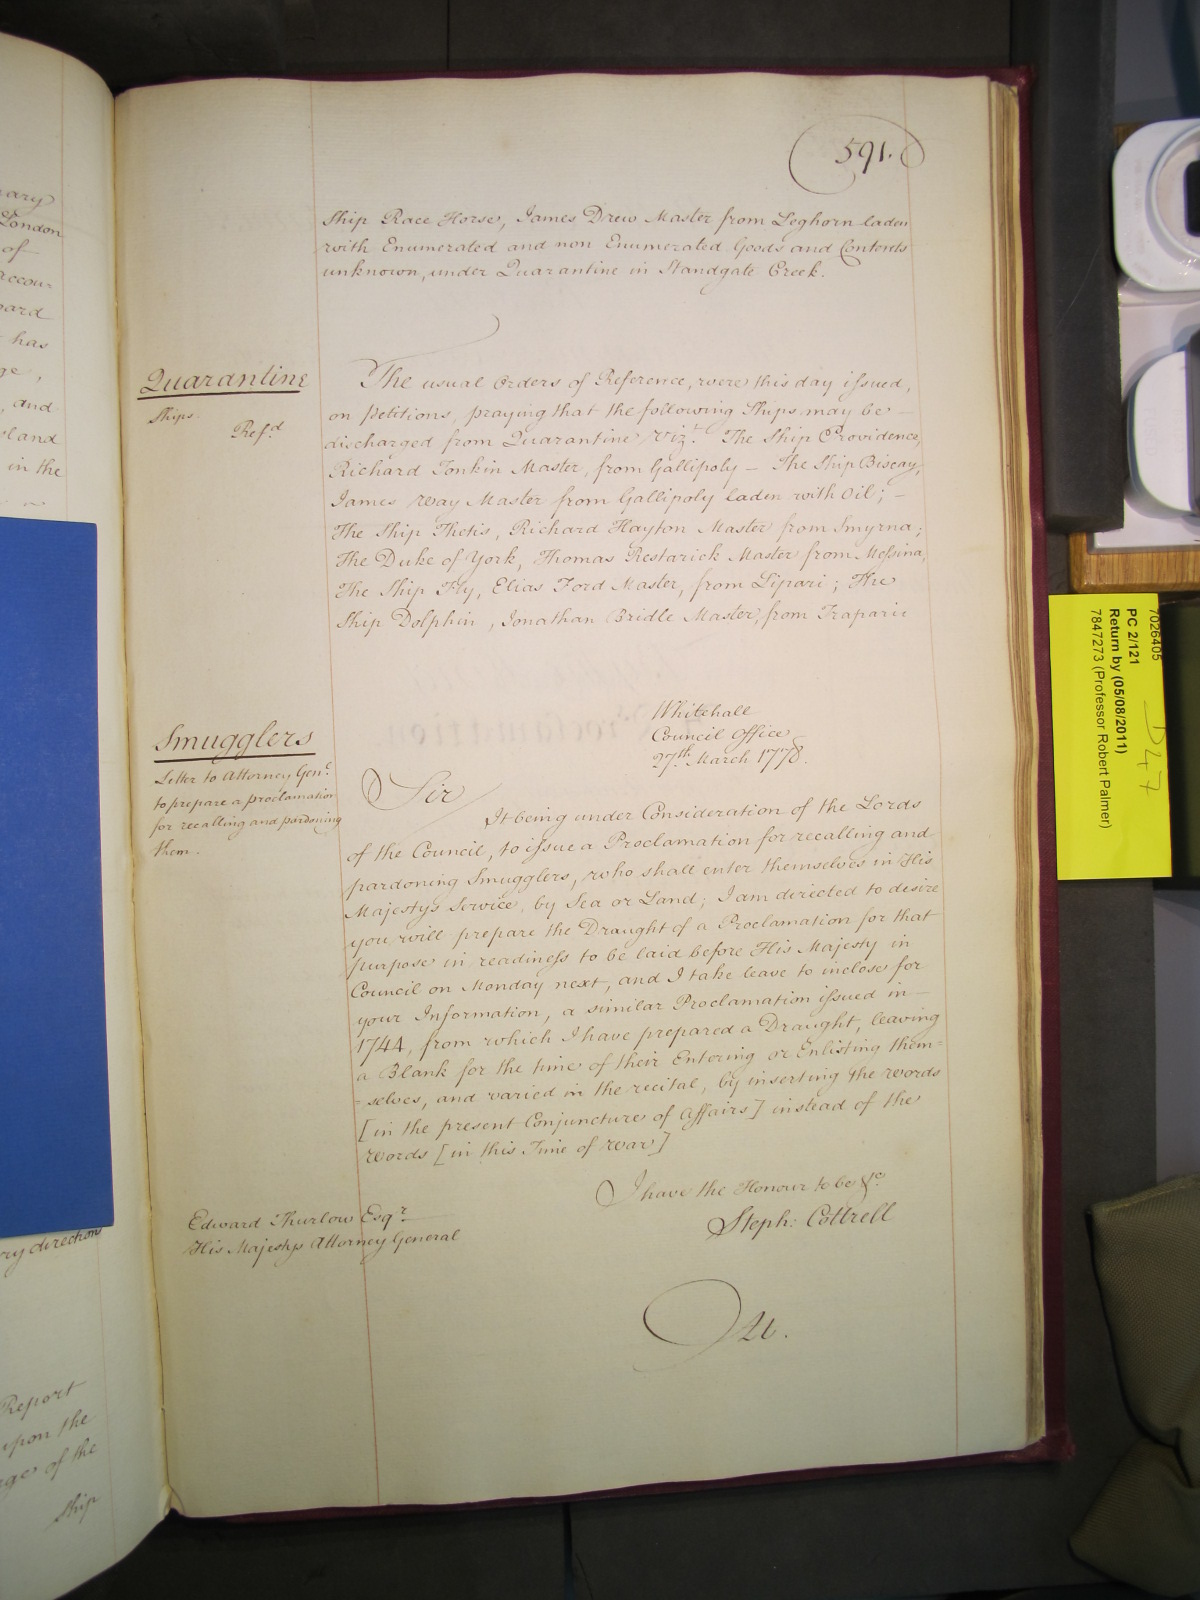 591.
Ship Race Horse, James Drew Master from Leghorn laden
with Enumerated and non Enumerated Goods and Contents
unknown, under Quarantine in Standgate Creek.
Quarantine
Ships
Refd
The usual Orders of Reference, were this day issued,
on Petitions, praying that the following Ships may be —
discharged from Quarantine Vizt. The Ship Providence,
Richard Tonkin Master, from Gallipoly — The Ship Biscay,
James Way Master from Gallipoly laden with Oil; —
The Ship Thetis, Richard Hayton Master from Smyrna;
The Duke of York, Thomas Restarick Master from Messina,
The Ship Fly, Elias Ford Master, from Lipari; The
Ship Dolphin, Jonathan Bridle Master, from Traparie
Smugglers
Letter to Attorney Genl.
to prepare a proclamation
for recalling and pardoning
them.
Whitehall
Council Office
27th March 1778.
Sir
It being under Consideration of the Lords
of the Council, to issue a Proclamation for recalling and
pardoning Smugglers, who shall enter themselves in His
Majestys Service, by Sea or Land; I am directed to desire
you will prepare the Draught of a Proclamation for that
purpose in readiness to be laid before His Majesty in
Council on Monday next, and I take leave to inclose for
your Information, a similar Proclamation issued in —
1744, from which I have prepared a Draught, leaving
a Blank for the time of their Entering or Enlisting them=
=selves, and varied in the recital, by inserting the words
[in the present Conjuncture of Affairs] instead of the
words [in this Time of War]
I have the Honour to be &c
Steph: Cottrell
Edward Thurlow Esqr.
His Majestys Attorney General
At.
ary
London
of
accou-
oard
has
ge,
, and
land
in the
ry directions
Report
upon the
age of the
Ship
7026405
PC 2/121
Return by (05/08/2011)
7847273 (Professor Robert Palmer)
D47